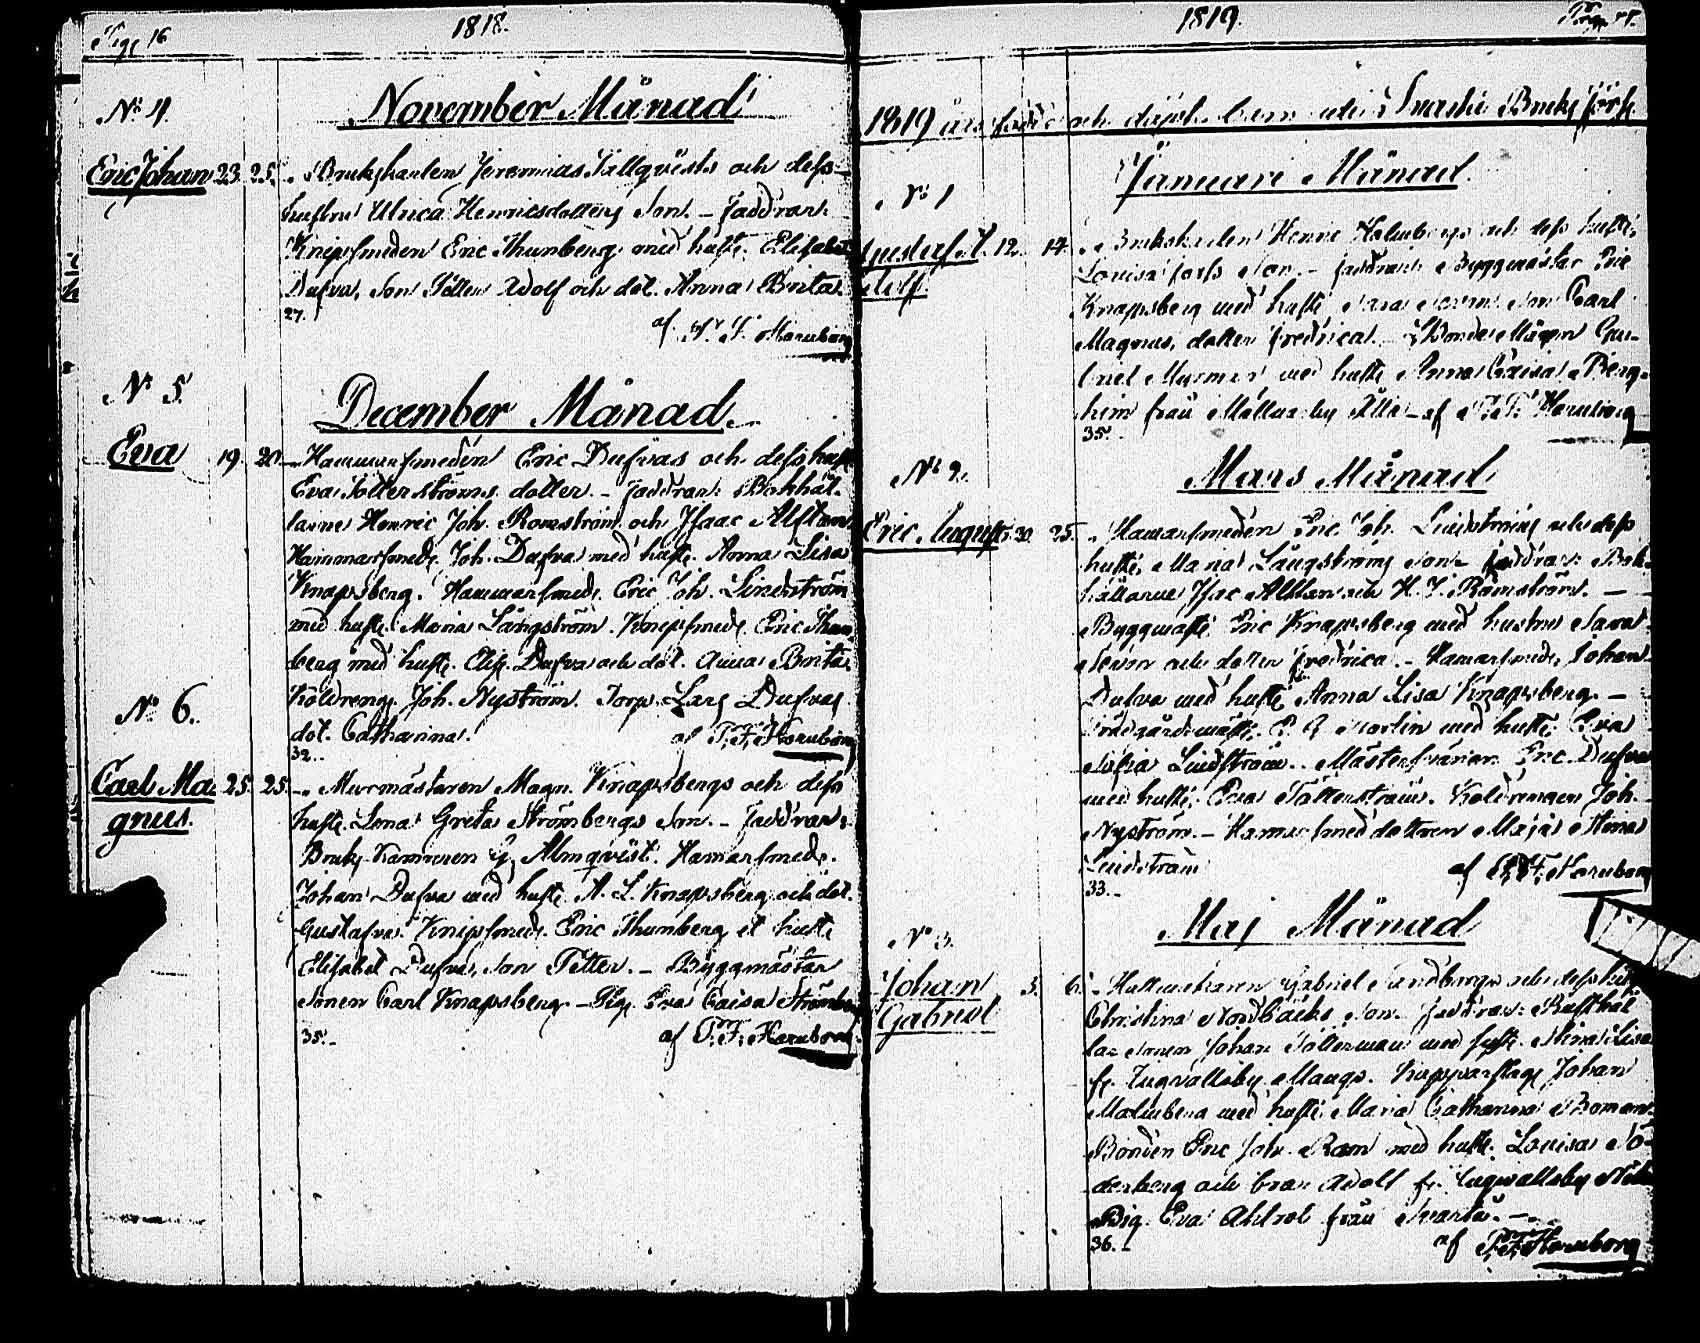 1818.
Pag 16
November Månad
No 4.
Eric Johan 23. 25. Brukskarlen Jeremias Tällqvists och dess
hustru Ulrica Henricsdotters Son. - Faddrar:
Knipsmeden Eric Thunberg med hust. Elisabet
Dufva, Son Petter Adolf och dot. Anna Brita.
27.
af T. F. Hornborg
No 5.
December Månad.
Eva 19. 20. Hammarsmeden Eric Dufvas och dess hust
Eva Tötterströms dotter. - Faddrar: Bokhål-
larne Henric Joh. Romström och Isaac Alftan
Hammarsmed. Joh. Dufva med hust. Anna Lisa
Knapsberg. Hammarsmed. Eric Joh. Lindström
med hust. Maria Långström. Knipsmed. Eric Thun
berg med hust. Elis. Dufva och dot. Anna Brita.
Koldreng. Joh. Nyström. Torp. Lars Dufvas
dot. Catharina.
af T. F. Hornborg
32.
No 6.
Carl Ma- 25. 25. Murmästaren Magn. Knapsbergs och dess
gnus. hust. Lena Greta Strömbergs Son. - Faddrar:
Bruks Kamreren G. Almqvist. Hamarsmed.
Johan Dufva med hust. A. L. Knapsberg och dot.
Gustafva. Knipsmed. Eric Thunberg et hust
Elisabet Dufva, Son Petter. - Byggmästar
Sonen Carl Knapsberg - Pig. Eva Caisa Strömbe
35.
af T. F. Hornborg
1819.
1819 års födde och döpte barn uti Bruks förs
Januari Månad
No 1
Gustaf A- 12. 14. Bruksbarlen Henric Holmbergs och dess hust.
dolf Lovisa Forss Son. - Faddrar: Byggmästar Eric
Knapsberg med hust. Sara Son Carl
Magnus, dotter Fredrica. Bonde Mågen Ga-
briel Murmer med hust. Anna Caisa Berg-
hem från by - af T. F. Hornborg
35.
No 2.
Mars Månad
Eric August 20. 25. Hamarsmeden Eric Joh. Lindströms och dess
hust. Maria Långströms Son - Faddrar: Bok-
hållarne Isac Alftan och H. J. Romström. -
Byggmäst. Eric Knapsberg med hustru Sara
och dotter Fredrica. - Hamarsmed. Johan
Dufva med hust. Anna Lisa Knapsberg. -
Trädgårdsmäst. Norlin med hust. Eva
Sofia Lindström. Mästersvänn. Eric Dufva
med hust. Eva Tötterström. Koldrengen Joh.
Nyström. - Hamarsmed dottren Maja Stina
Lindström
af T. F. Hornborg
33.
Maj Månad
No 3.
Johan 3. 6. Gabriel Sandbergs och dess hust
Gabriel Christina Nordbäcks Son. Faddrar: Rusthål
lar Sonen Johan Töllerman med hust. Stina Lisa
fr. Ingvallsby Maugs. Kopparslag. Johan
Malmberg med hust. Maria Catharina Boman.
Bonden Eric Joh. Ram med hust. Lovisa Sö-
derberg och bror Adolf fr. Ingvallsby
Pig. Eva Ahlrot från Svartå. -
36.
af T. F. Hornborg